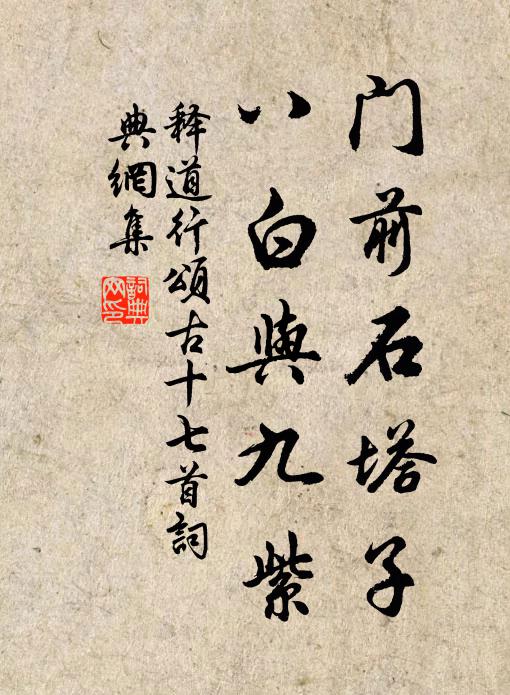 门前石塔子
八白與九紫
释道行頌古十七首詞
典網集
詞典網印